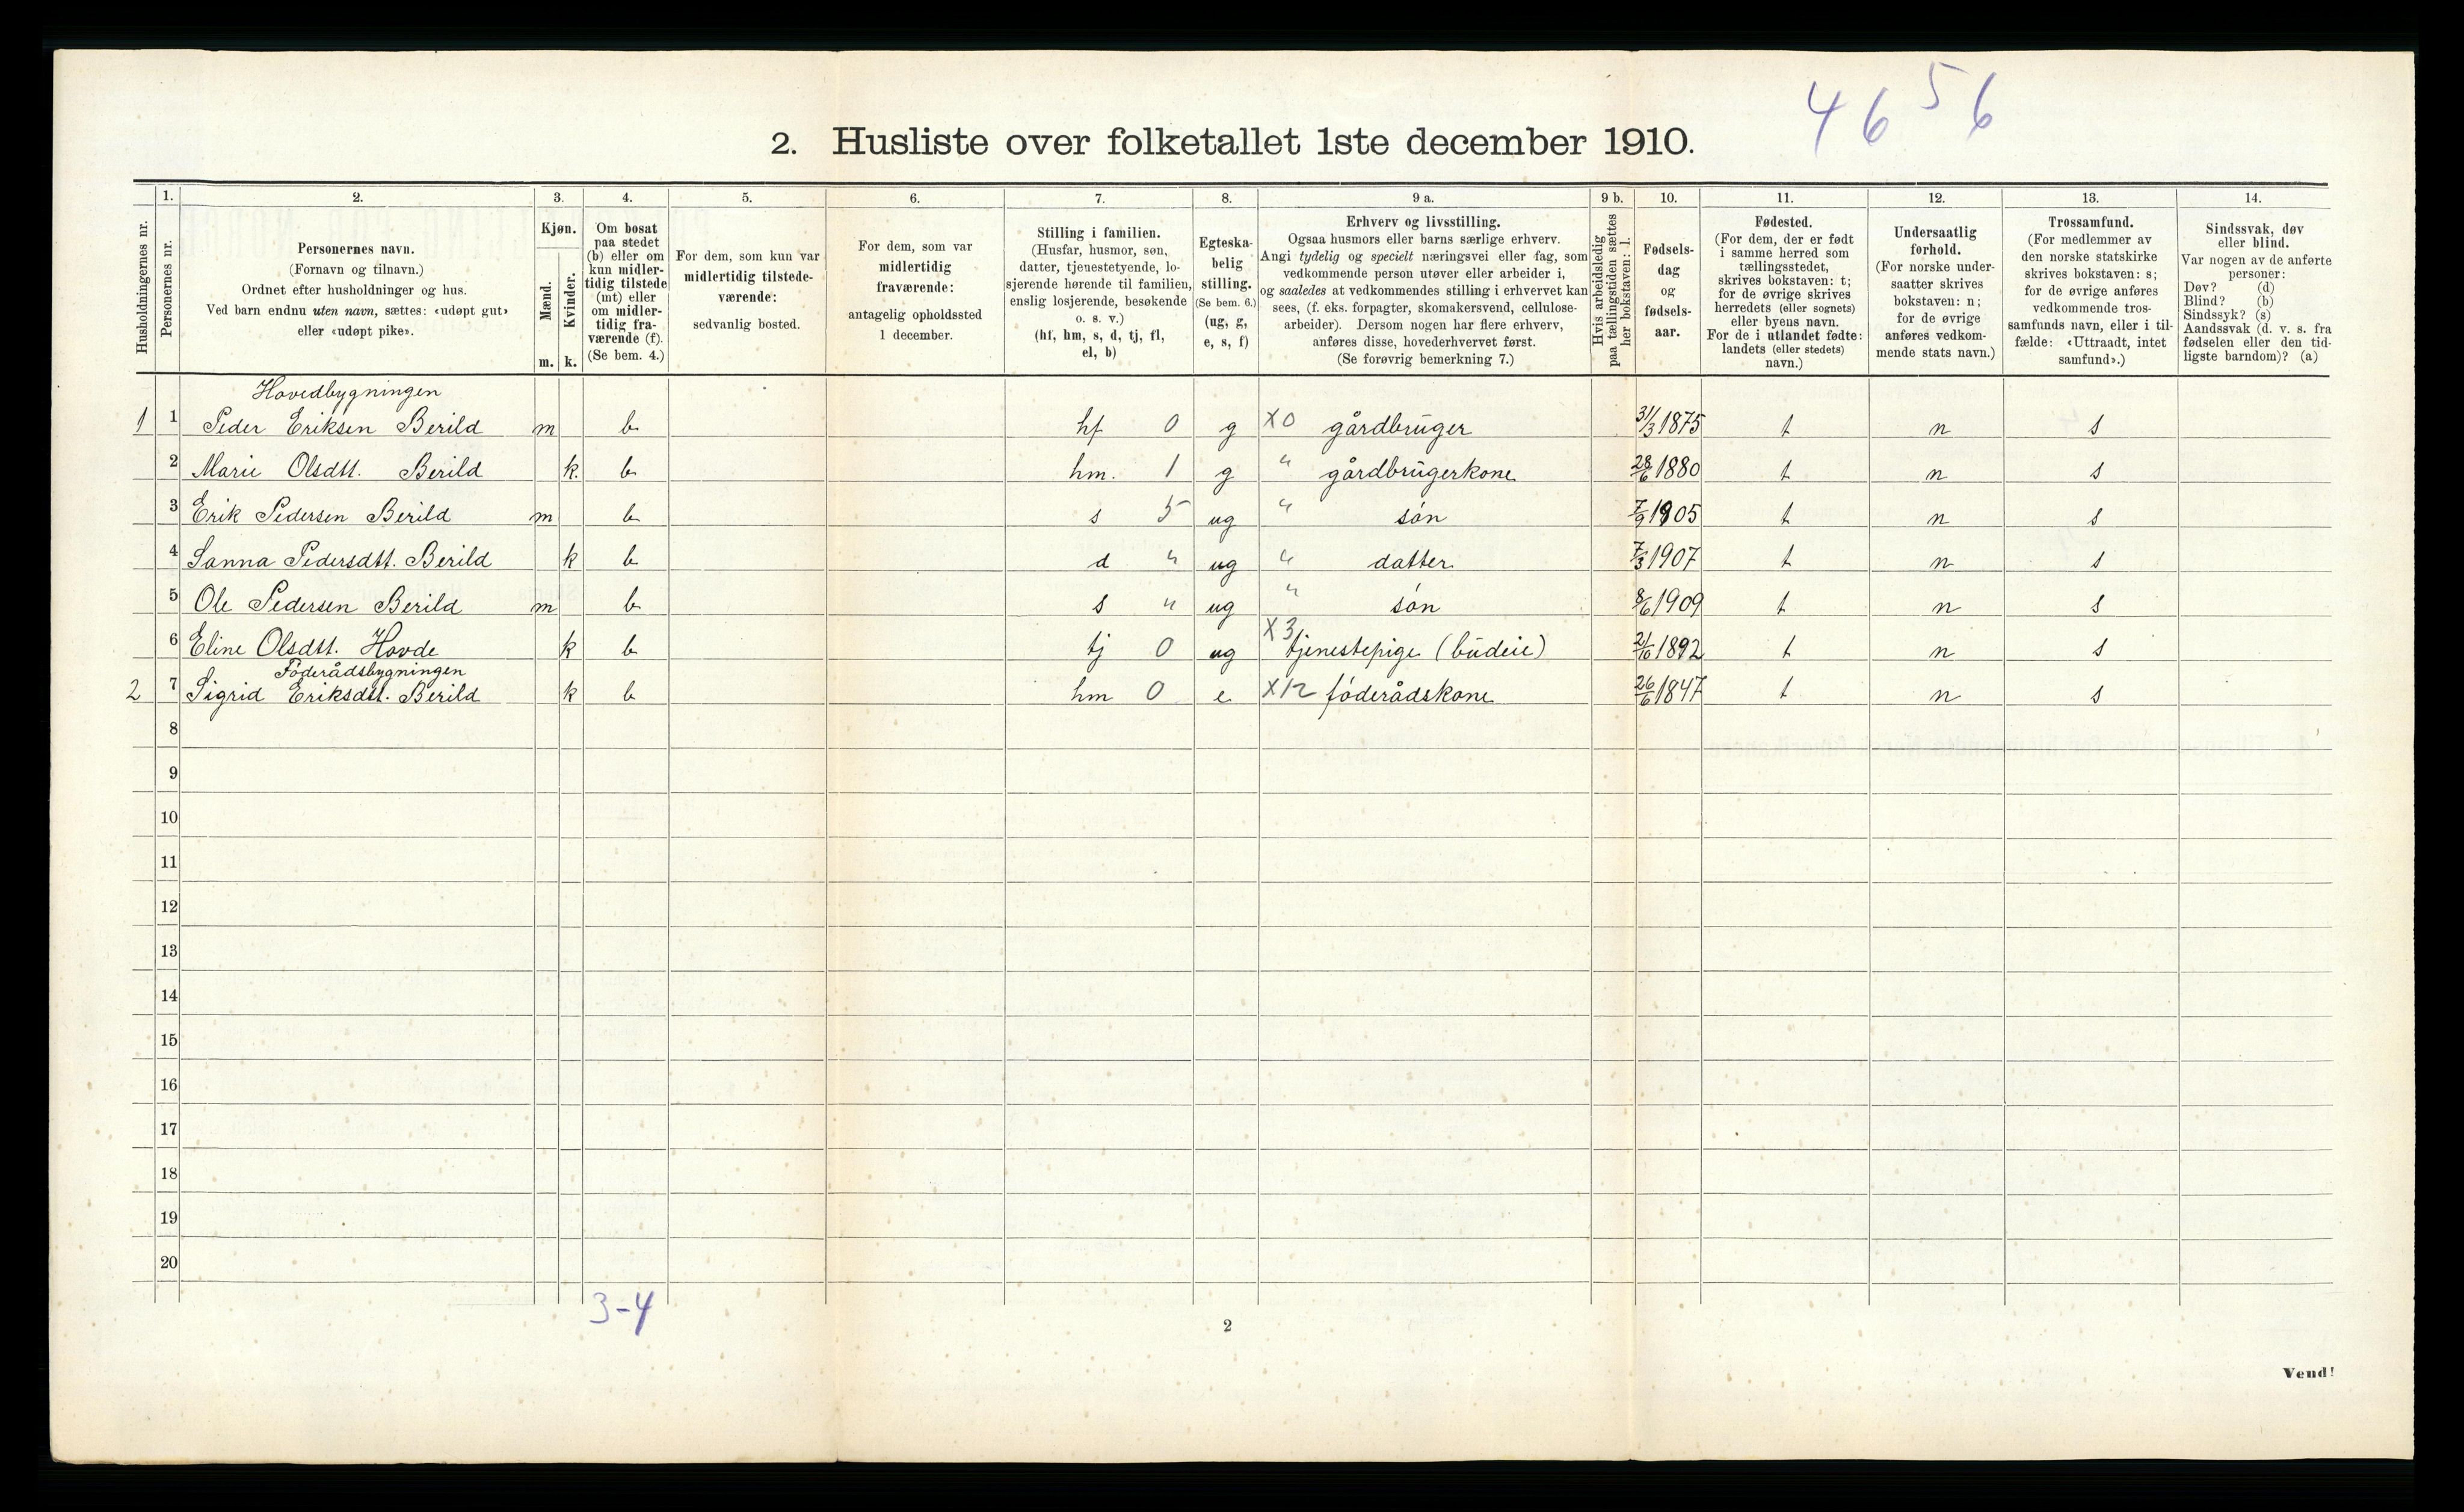 4656
2. Husliste over folketallet 1ste december 1910.
Husholdningernes nr.
1.
Personernes nr.
2.
Personernes navn.
(Fornavn og tilnavn.)
Ordnet efter husholdninger og hus.
Ved barn endnu uten navn, sættes: «udøpt gut»
eller «udøpt pike».
3.
Kjøn.
Mænd.
m.
Kvinder.
k.
4.
Om bosat
paa stedet
(b) eller om
kun midler-
tidig tilstede
(mt) eller
om midler-
tidig fra-
værende (f).
(Se bem. 4.)
5.
For dem, som kun var
midlertidig tilstede-
værende:
sedvanlig bosted.
6.
For dem, som var
midlertidig
fraværende:
antagelig opholdssted
1 december.
7.
Stilling i familien.
(Husfar, husmor, søn,
datter, tjenestetyende, lo-
sjerende hørende til familien,
enslig losjerende, besøkende
o. s. v.)
(hf, hm, s, d, tj, fl,
el, b)
8.
Egteska-
belig
stilling.
(Se bem. 6.)
(ug, g,
e, s, f)
9 a.
Erhverv og livsstilling.
Ogsaa husmors eller barns særlige erhverv.
Angi tydelig og specielt næringsvei eller fag, som
vedkommende person utøver eller arbeider i,
og saaledes at vedkommendes stilling i erhvervet kan
sees, (f. eks. forpagter, skomakersvend, cellulose-
arbeider). Dersom nogen har flere erhverv,
anføres disse, hovederhvervet først.
(Se forøvrig bemerkning 7.)
9 b.
Hvis arbeidsledig
paa tællingstiden sættes
her bokstaven: l.
10.
Fødsels-
dag
og
fødsels-
aar.
11.
Fødested.
(For dem, der er født
i samme herred som
tællingsstedet,
skrives bokstaven: t;
for de øvrige skrives
herredets (eller sognets)
eller byens navn.
For de i utlandet fødte:
landets (eller stedets)
navn.)
12.
Undersaatlig
forhold.
(For norske under-
saatter skrives
bokstaven: n;
for de øvrige
anføres vedkom-
mende stats navn.)
13.
Trossamfund.
(For medlemmer av
den norske statskirke
skrives bokstaven: s;
for de øvrige anføres
vedkommende tros-
samfunds navn, eller i til-
fælde: «Uttraadt, intet
samfund».)
14.
Sindssvak, døv
eller blind.
Var nogen av de anførte
personer:
Døv? (d)
Blind? (b)
Sindssyk? (s)
Aandssvak (d. v. s. fra
fødselen eller den tid-
ligste barndom)? (a)
Hovedbygningen
1 1 Peder Eriksen Berild m b hf 0 g X0 gårdbruger 31/3 1875 t n s
2 Marie Olsdtt. Berild k. b hm. 1 g " gårdbrugerkone 28/6 1880 t n s
3 Erik Pedersen Berild m b s 5 ug " søn 7/9 1905 t n s
4 Sanna Pedersdtt. Berild k b d " ug " datter 7/3 1907 t n s
5 Ole Pedersen Berild m b s " ug " søn 8/6 1909 t n s
6 Eline Olsdtt. Hovde k b tj 0 ug X3 tjenestepige (budeie) 21/10 1892 t n s
Føderådsbygningen
2 7 Sigrid Eriksdtt. Berild k b hm 0 e X12 føderådskone 26/6 1847 t n s
8
9
10
11
12
13
14
15
16
17
18
19
20
3-4
2
Vend!